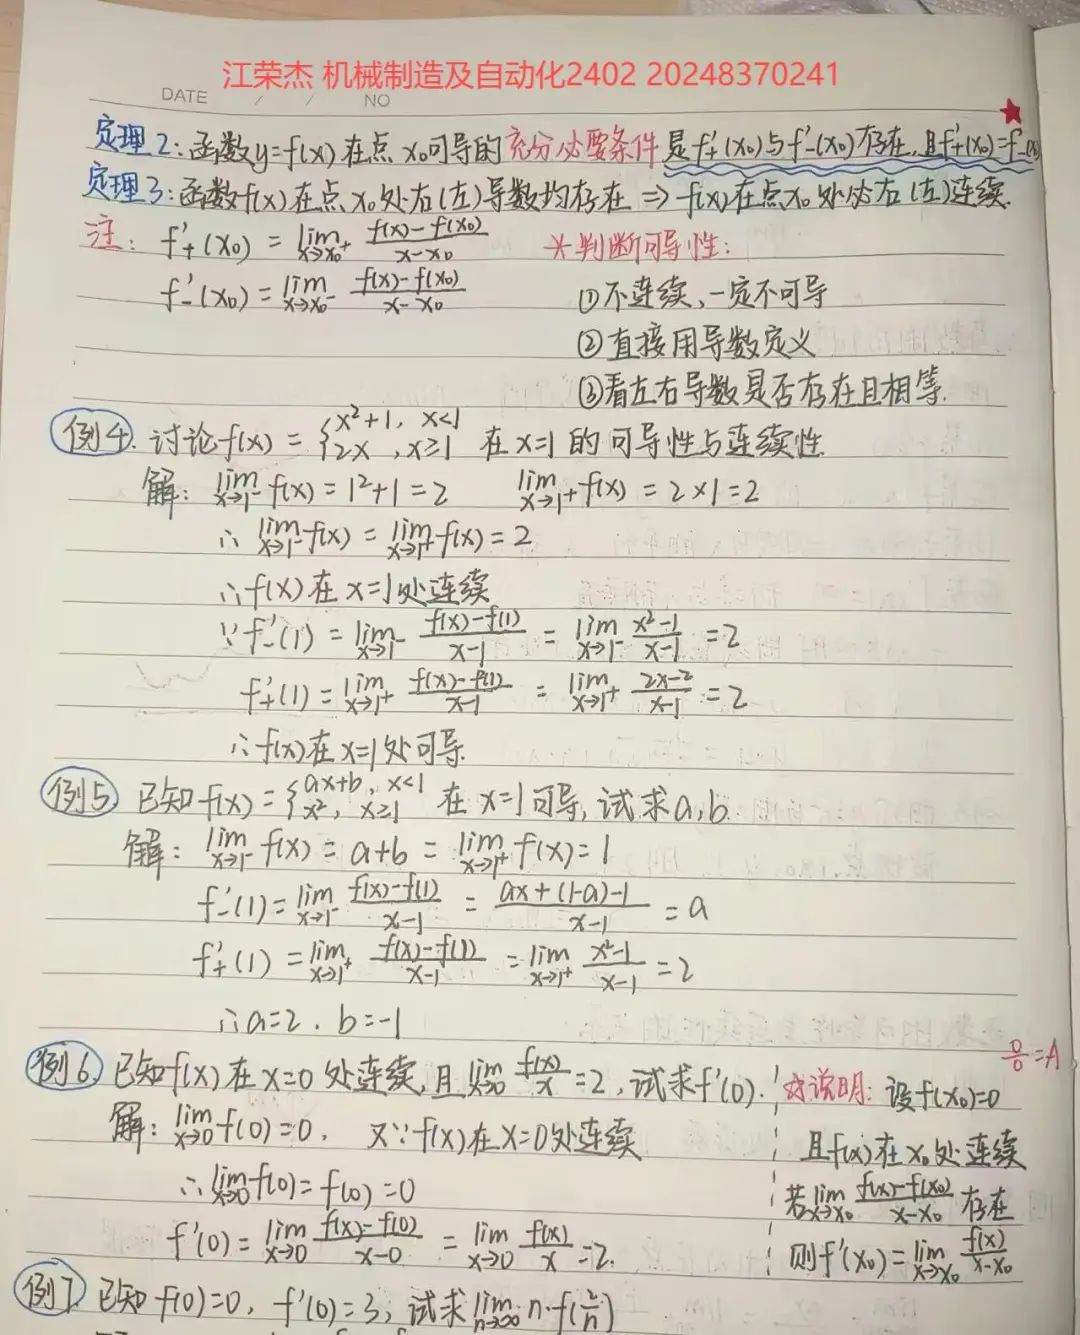 江荣杰 机械制造及自动化2402 20248370241
DATE / / NO
定理2:函数y=f(x)在点x₀可导的充分必要条件是f'₊(x₀)与f'₋(x₀)存在,且f'₊(x₀)=f'₋(x₀)
定理3:函数f(x)在点x₀处右(左)导数均存在 ⇒ f(x)在点x₀处必右(左)连续.
注: f'₊(x₀) = lim x→x₀⁺ (f(x)-f(x₀))/(x-x₀) *判断可导性:
f'₋(x₀) = lim x→x₀⁻ (f(x)-f(x₀))/(x-x₀) ①不连续,一定不可导
②直接用导数定义
③看左右导数是否存在且相等.
例4. 讨论f(x) = {x²+1, x<1 2x, x≥1 在x=1的可导性与连续性.
解: lim x→1⁻ f(x) = 1²+1 = 2 lim x→1⁺ f(x) = 2×1 = 2
∴ lim x→1⁻ f(x) = lim x→1⁺ f(x) = 2
∴f(x)在x=1处连续
∵f'₋(1) = lim x→1⁻ (f(x)-f(1))/(x-1) = lim x→1⁻ (x²-1)/(x-1) = 2
f'₊(1) = lim x→1⁺ (f(x)-f(1))/(x-1) = lim x→1⁺ (2x-2)/(x-1) = 2
∴f(x)在x=1处可导.
例5. 已知f(x) = {ax+b, x<1 x², x≥1 在x=1可导,试求a,b.
解: lim x→1⁻ f(x) = a+b = lim x→1⁺ f(x) = 1
f'₋(1) = lim x→1⁻ (f(x)-f(1))/(x-1) = (ax+(1-a)-1)/(x-1) = a
f'₊(1) = lim x→1⁺ (f(x)-f(1))/(x-1) = lim x→1⁺ (x²-1)/(x-1) = 2
∴a=2. b=-1
0/0=A
例6. 已知f(x)在x=0处连续,且lim x→0 f(x)/x = 2,试求f'(0). ☆说明: 设f(x₀)=0
解: lim x→0 f(0) = 0, 又∵f(x)在x=0处连续 且f(x)在x₀处连续
∴ lim x→0 f(0) = f(0) = 0 若lim x→x₀ (f(x)-f(x₀))/(x-x₀) 存在
f'(0) = lim x→0 (f(x)-f(0))/(x-0) = lim x→0 f(x)/x = 2. 则f'(x₀) = lim x→x₀ f(x)/(x-x₀)
例7. 已知f(0)=0, f'(0)=3, 试求lim n→∞ n·f(2/n)